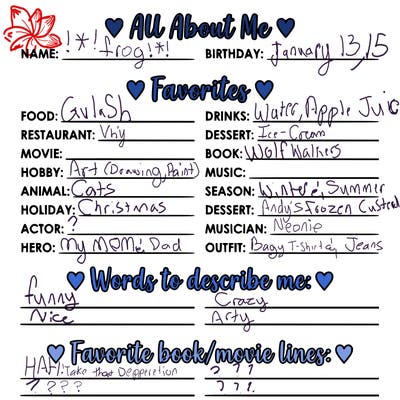 All About Me
NAME: !*!frog!*! BIRTHDAY: January 13, 15
Favorites
FOOD: Gulash DRINKS: Water, Apple Juic
RESTAURANT: Vhy DESSERT: Ice-Cream
MOVIE: BOOK: Wolf Walkers
HOBBY: Art (Drawing, Paint) MUSIC:
ANIMAL: Cats SEASON: Winter &, Summer
HOLIDAY: Christmas DESSERT: Andy's Frozen Custerd
ACTOR: ? MUSICIAN: Neonie
HERO: My MOM &, Dad OUTFIT: Bagy T-Shirt &, Jeans
Words to describe me:
funny Crazy
Nice Arty
Favorite book/movie lines:
HAH! Take that Depperetion ? ? ?
? ? ? ? ? ? ?.